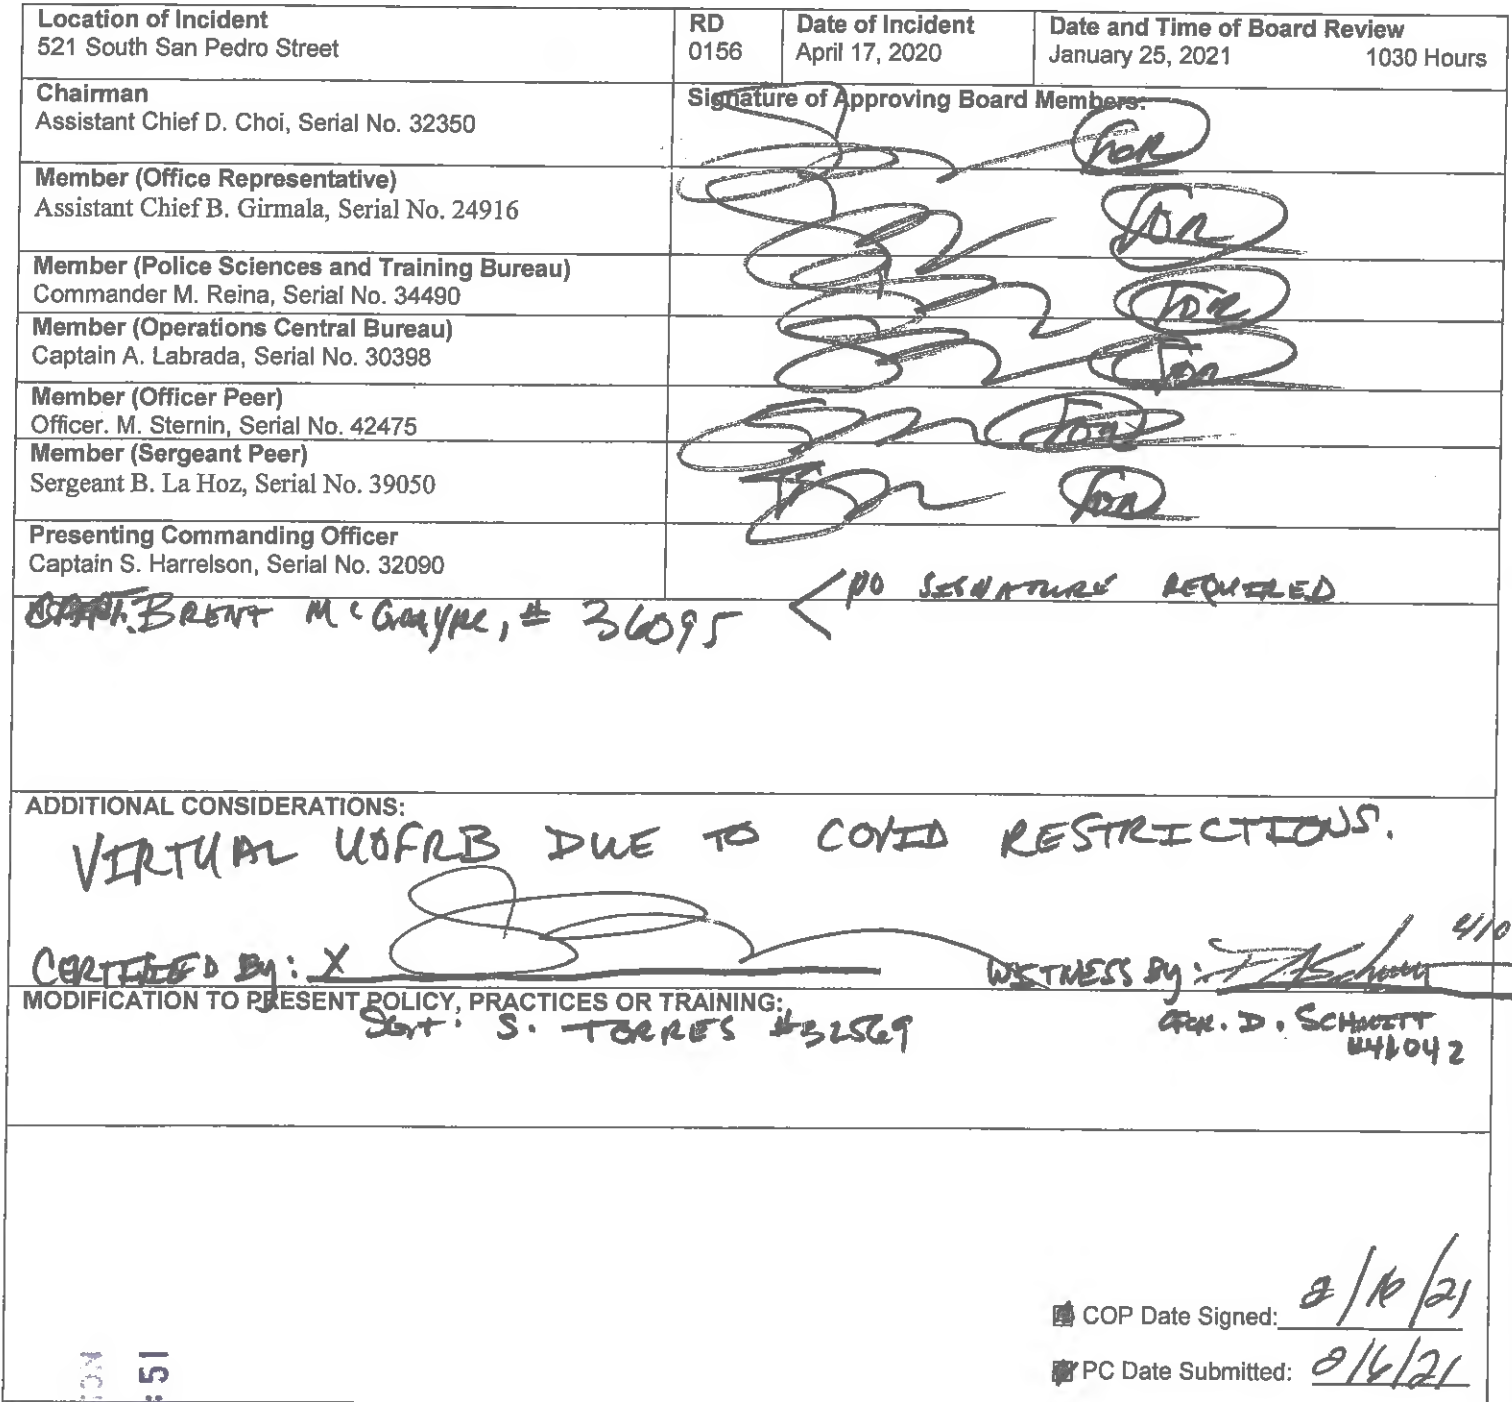 Location of Incident
521 South San Pedro Street
RD
0156
Date of Incident
April 17, 2020
Date and Time of Board Review
January 25, 2021 1030 Hours
Chairman
Assistant Chief D. Choi, Serial No. 32350
Signature of Approving Board Members:
FOR
Member (Office Representative)
Assistant Chief B. Girmala, Serial No. 24916
FOR
Member (Police Sciences and Training Bureau)
Commander M. Reina, Serial No. 34490
FOR
Member (Operations Central Bureau)
Captain A. Labrada, Serial No. 30398
FOR
Member (Officer Peer)
Officer. M. Sternin, Serial No. 42475
FOR
Member (Sergeant Peer)
Sergeant B. La Hoz, Serial No. 39050
FOR
Presenting Commanding Officer
Captain S. Harrelson, Serial No. 32090
BRENT McGuyre, # 36095 < NO SIGNATURE REQUIRED
ADDITIONAL CONSIDERATIONS:
VIRTUAL UOFRB DUE TO COVID RESTRICTIONS.
CERTIFIED By: X
WITNESS By:
MODIFICATION TO PRESENT POLICY, PRACTICES OR TRAINING:
SGT. S. TORRES #32569
OFCR. D. SCHMITT
#41042
COP Date Signed:
PC Date Submitted: 8/6/21
:51